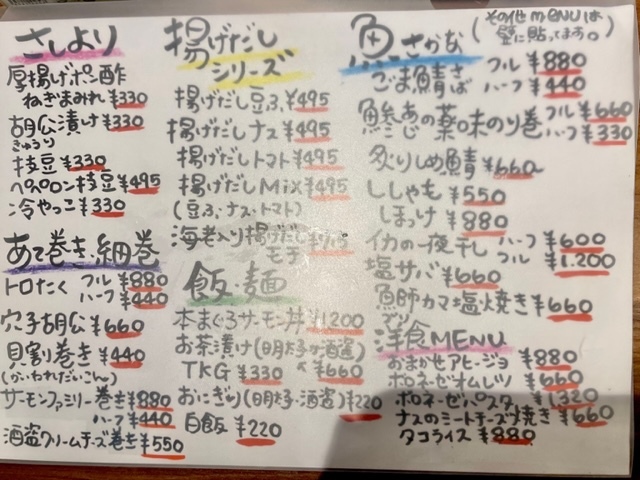 さしより
厚揚げポン酢
ねぎまみれ ¥330
胡瓜漬け ¥330
きゅうり
枝豆 ¥330
ペペロン枝豆 ¥495
冷やっこ ¥330
あて巻き・細巻
トロたく フル ¥880
ハーフ ¥440
穴子胡瓜 ¥660
貝割巻き ¥440
(かいわれだいこん)
サーモンファミリー巻き ¥880
ハーフ ¥440
酒盗クリームチーズ巻き ¥550
揚げだし
シリーズ
揚げだし豆ふ ¥495
揚げだしナス ¥495
揚げだしトマト ¥495
揚げだしMix ¥495
(豆ふ、ナス・トマト)
海老入り揚げだし
モチ
飯・麺
本まぐろサーモン丼 ¥1200
お茶漬け(明太子か酒盗)
TKG ¥330 ¥660
おにぎり(明太子・酒盗) ¥220
白飯 ¥220
魚 さかな
(その他MENUは
壁に貼ってます。)
ごま鯖 さば フル ¥880
ハーフ ¥440
鯵 あじの薬味のり巻 フル ¥660
ハーフ ¥330
炙りしめ鯖 ¥660
ししゃも ¥550
しほっけ ¥880
イカの一夜干し ハーフ ¥600
フル ¥1.200
塩サバ ¥660
魚師カマ塩焼き ¥660
ブリ
洋食MENU
おまかせアヒージョ ¥880
ボロネーゼオムレツ ¥660
ボロネーゼパスタ ¥1,320
ナスのミートチーズ焼き ¥660
タコライス ¥880